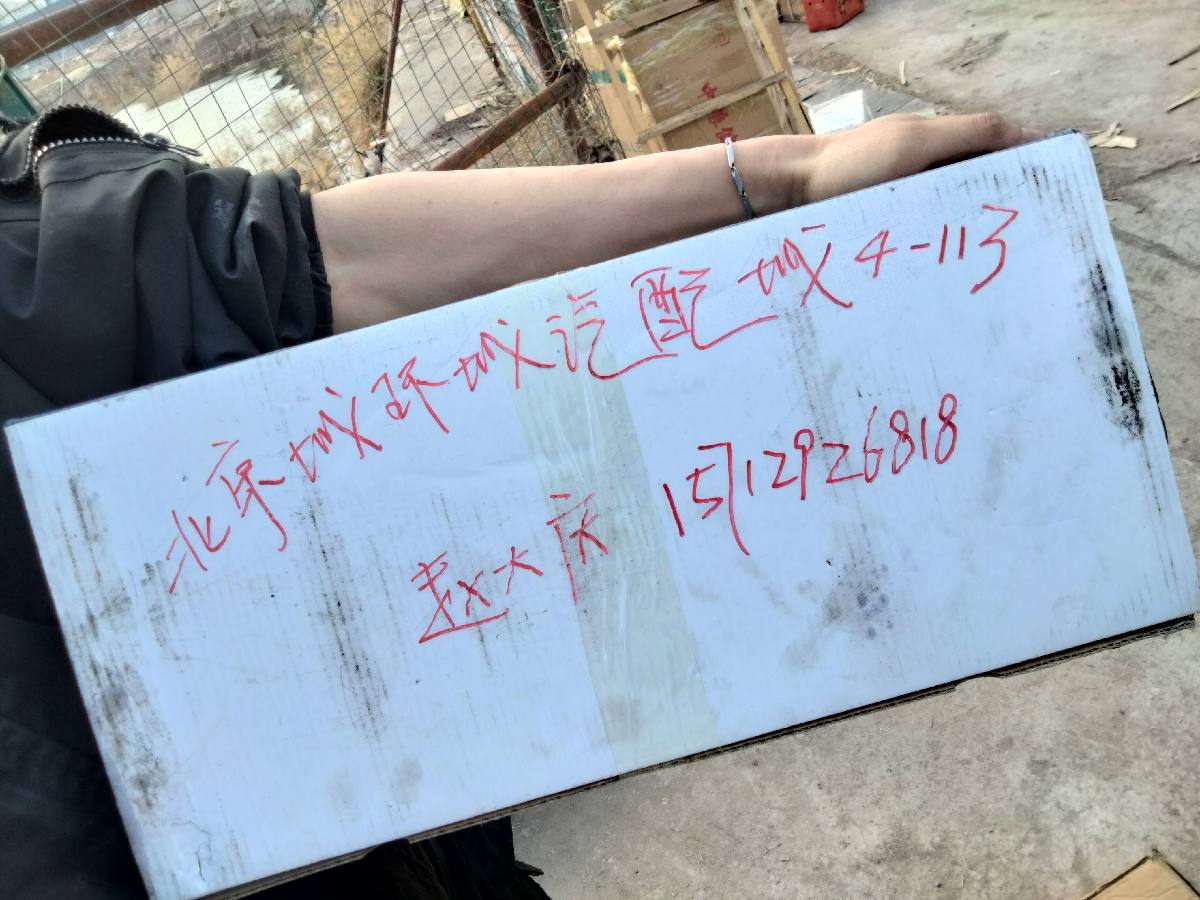 北京城环城汽配城4-113
赵大庆 15712926818